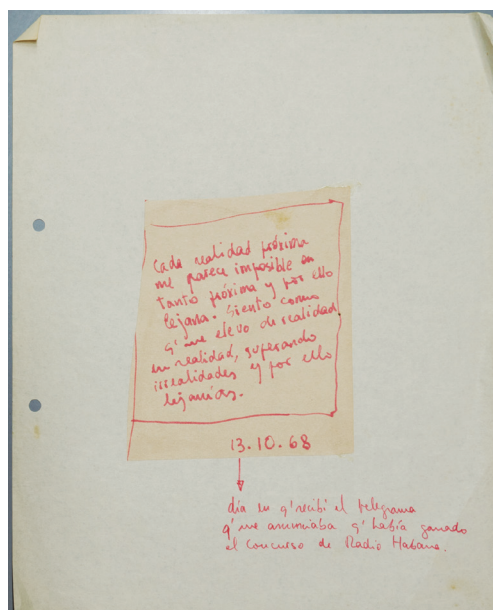 Cada realidad próxima
me parece imposible en
tanto próxima y por ello
lejana. Siento como
q' me elevo de realidad
en realidad, superando
irrealidades y por ello
lejanías.
13.10.68
día en q' recibí el telegrama
q' me anunciaba q' había ganado
el concurso de Radio Habana.